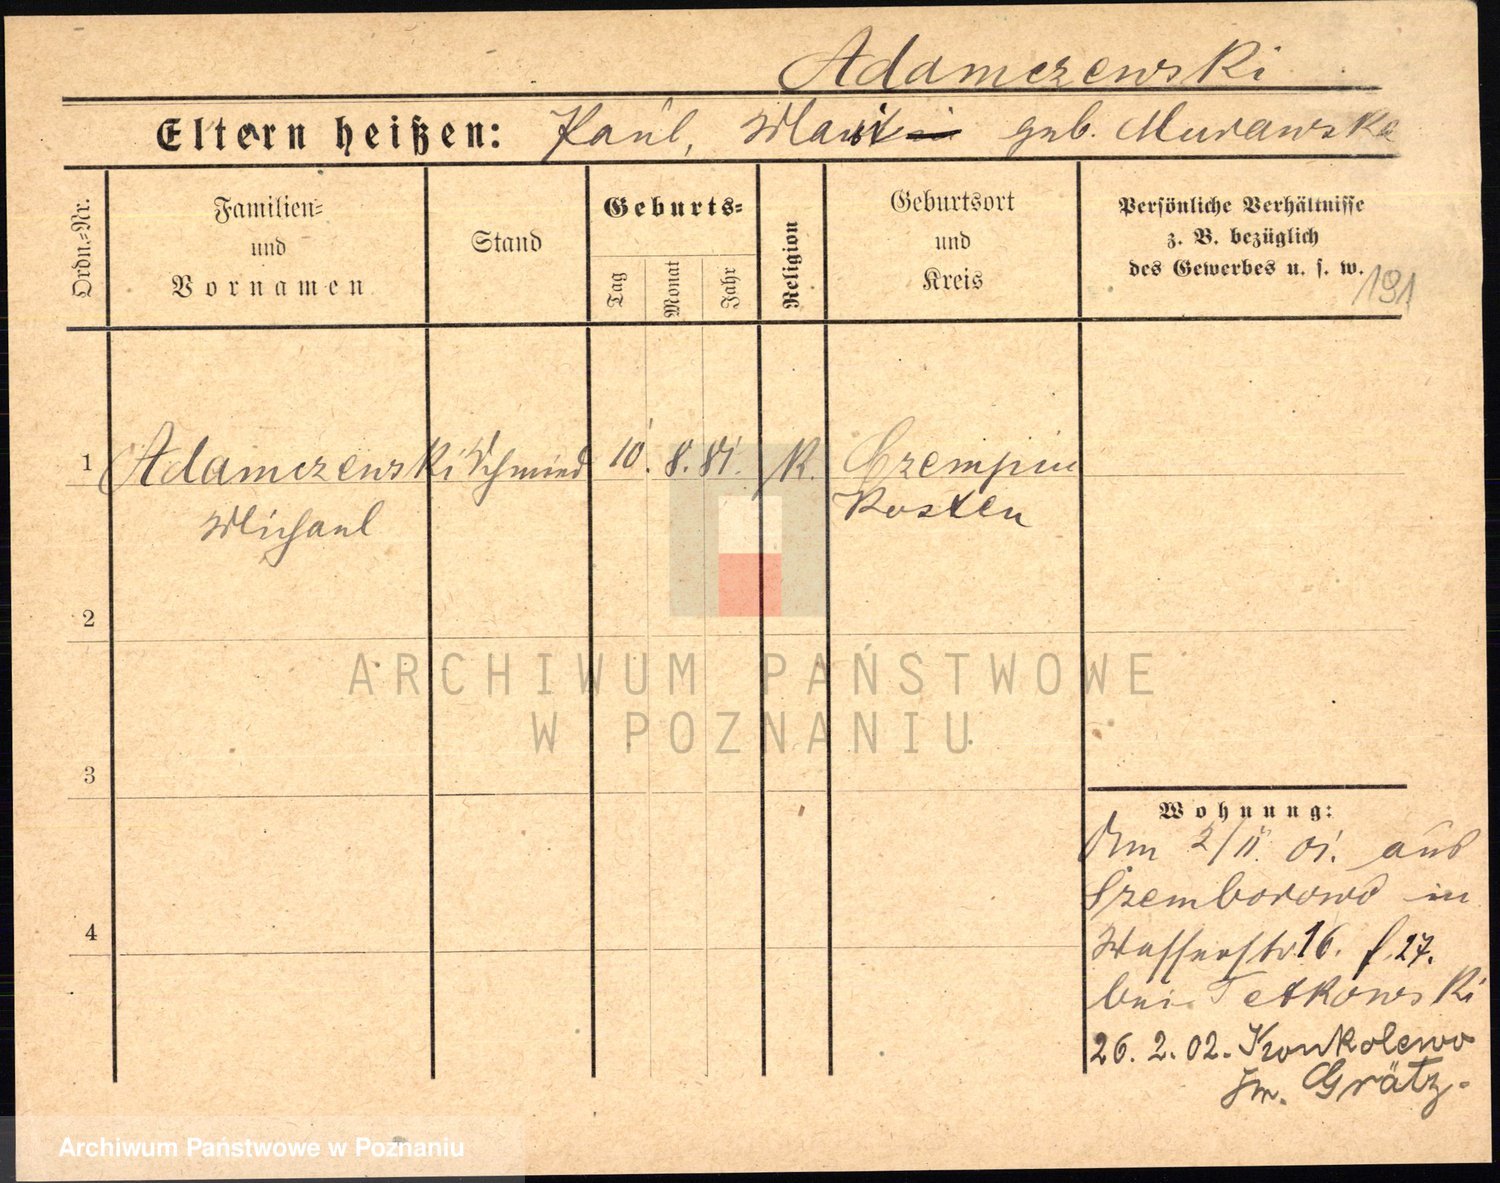 Adamczewski
Eltern heißen: Paul, geb. Murawska
Ordn.-Nr.
Familien-
und
Vornamen
Stand
Geburts-
Tag
Monat
Jahr
Religion
Geburtsort
und
Kreis
Persönliche Verhältnisse
z. B. bezüglich
des Gewerbes u. s. w.
191
1 Adamczewski Schmied 10. 8. 81. K. Czempin
Michael Kosten
2
ARCHIWUM PAŃSTWOWE
W POZNANIU
3
Wohnung:
Am 2/II. 01. aus
Szemborowo in
Wasserstr. 16. f. 27.
bei Tetkowski
26. 2. 02. Kronkolewo
Grätz.
4
Archiwum Państwowe w Poznaniu